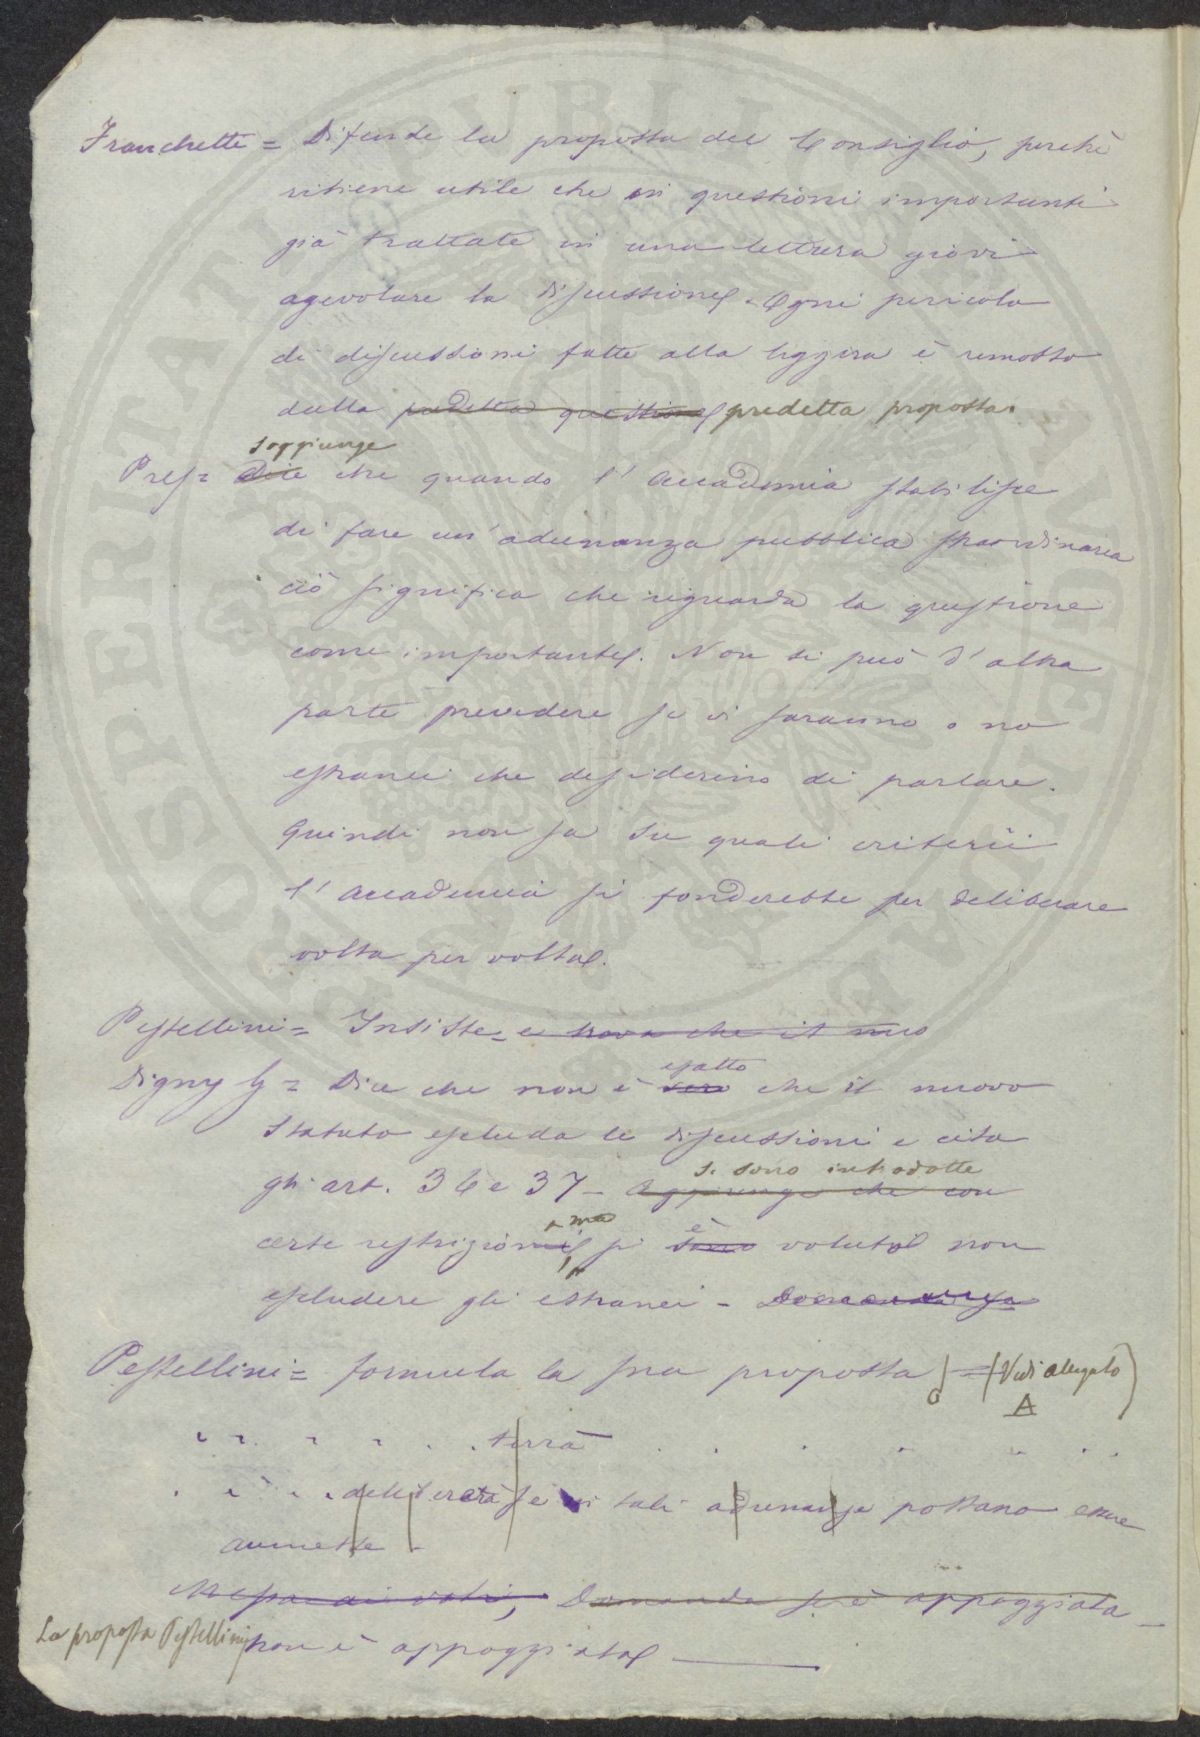 Franchetti = Difende la proposta del Consiglio, perchè
ritiene utile che in questioni importanti
già trattate in una lettura giovi
agevolare la discussione. Ogni pericolo
di discussioni fatte alla leggera è rimosso
dalla predetta questione predetta proposta.
soggiunge
Pres = Dice che quando l'Accademia stabilisce
di fare un'adunanza pubblica straordinaria
ciò significa che riguarda la questione
come importante. Non si può d'altra
parte prevedere se vi saranno o no
estranei che desiderino di parlare.
Quindi non sa su quali criterii
l'Accademia si fonderebbe per deliberare
volta per volta.
Pestellini = Insiste e trova che il nuo
esatto
Digny G = Dice che non è vero che il nuovo
Statuto escluda le discussioni e cita
si sono introdotte
gli art. 36 e 37 - Aggiunge che con
ma è
certe restrizioni si sono voluto non
escludere gli estranei -
Pestellini = formula la sua proposta = (Vedi allegato
A
terrà
delibererà se in tali adunanze possano essere
ammesse -
Messa ai voti, Domanda se è appoggiata
La proposta Pestellini non è appoggiata